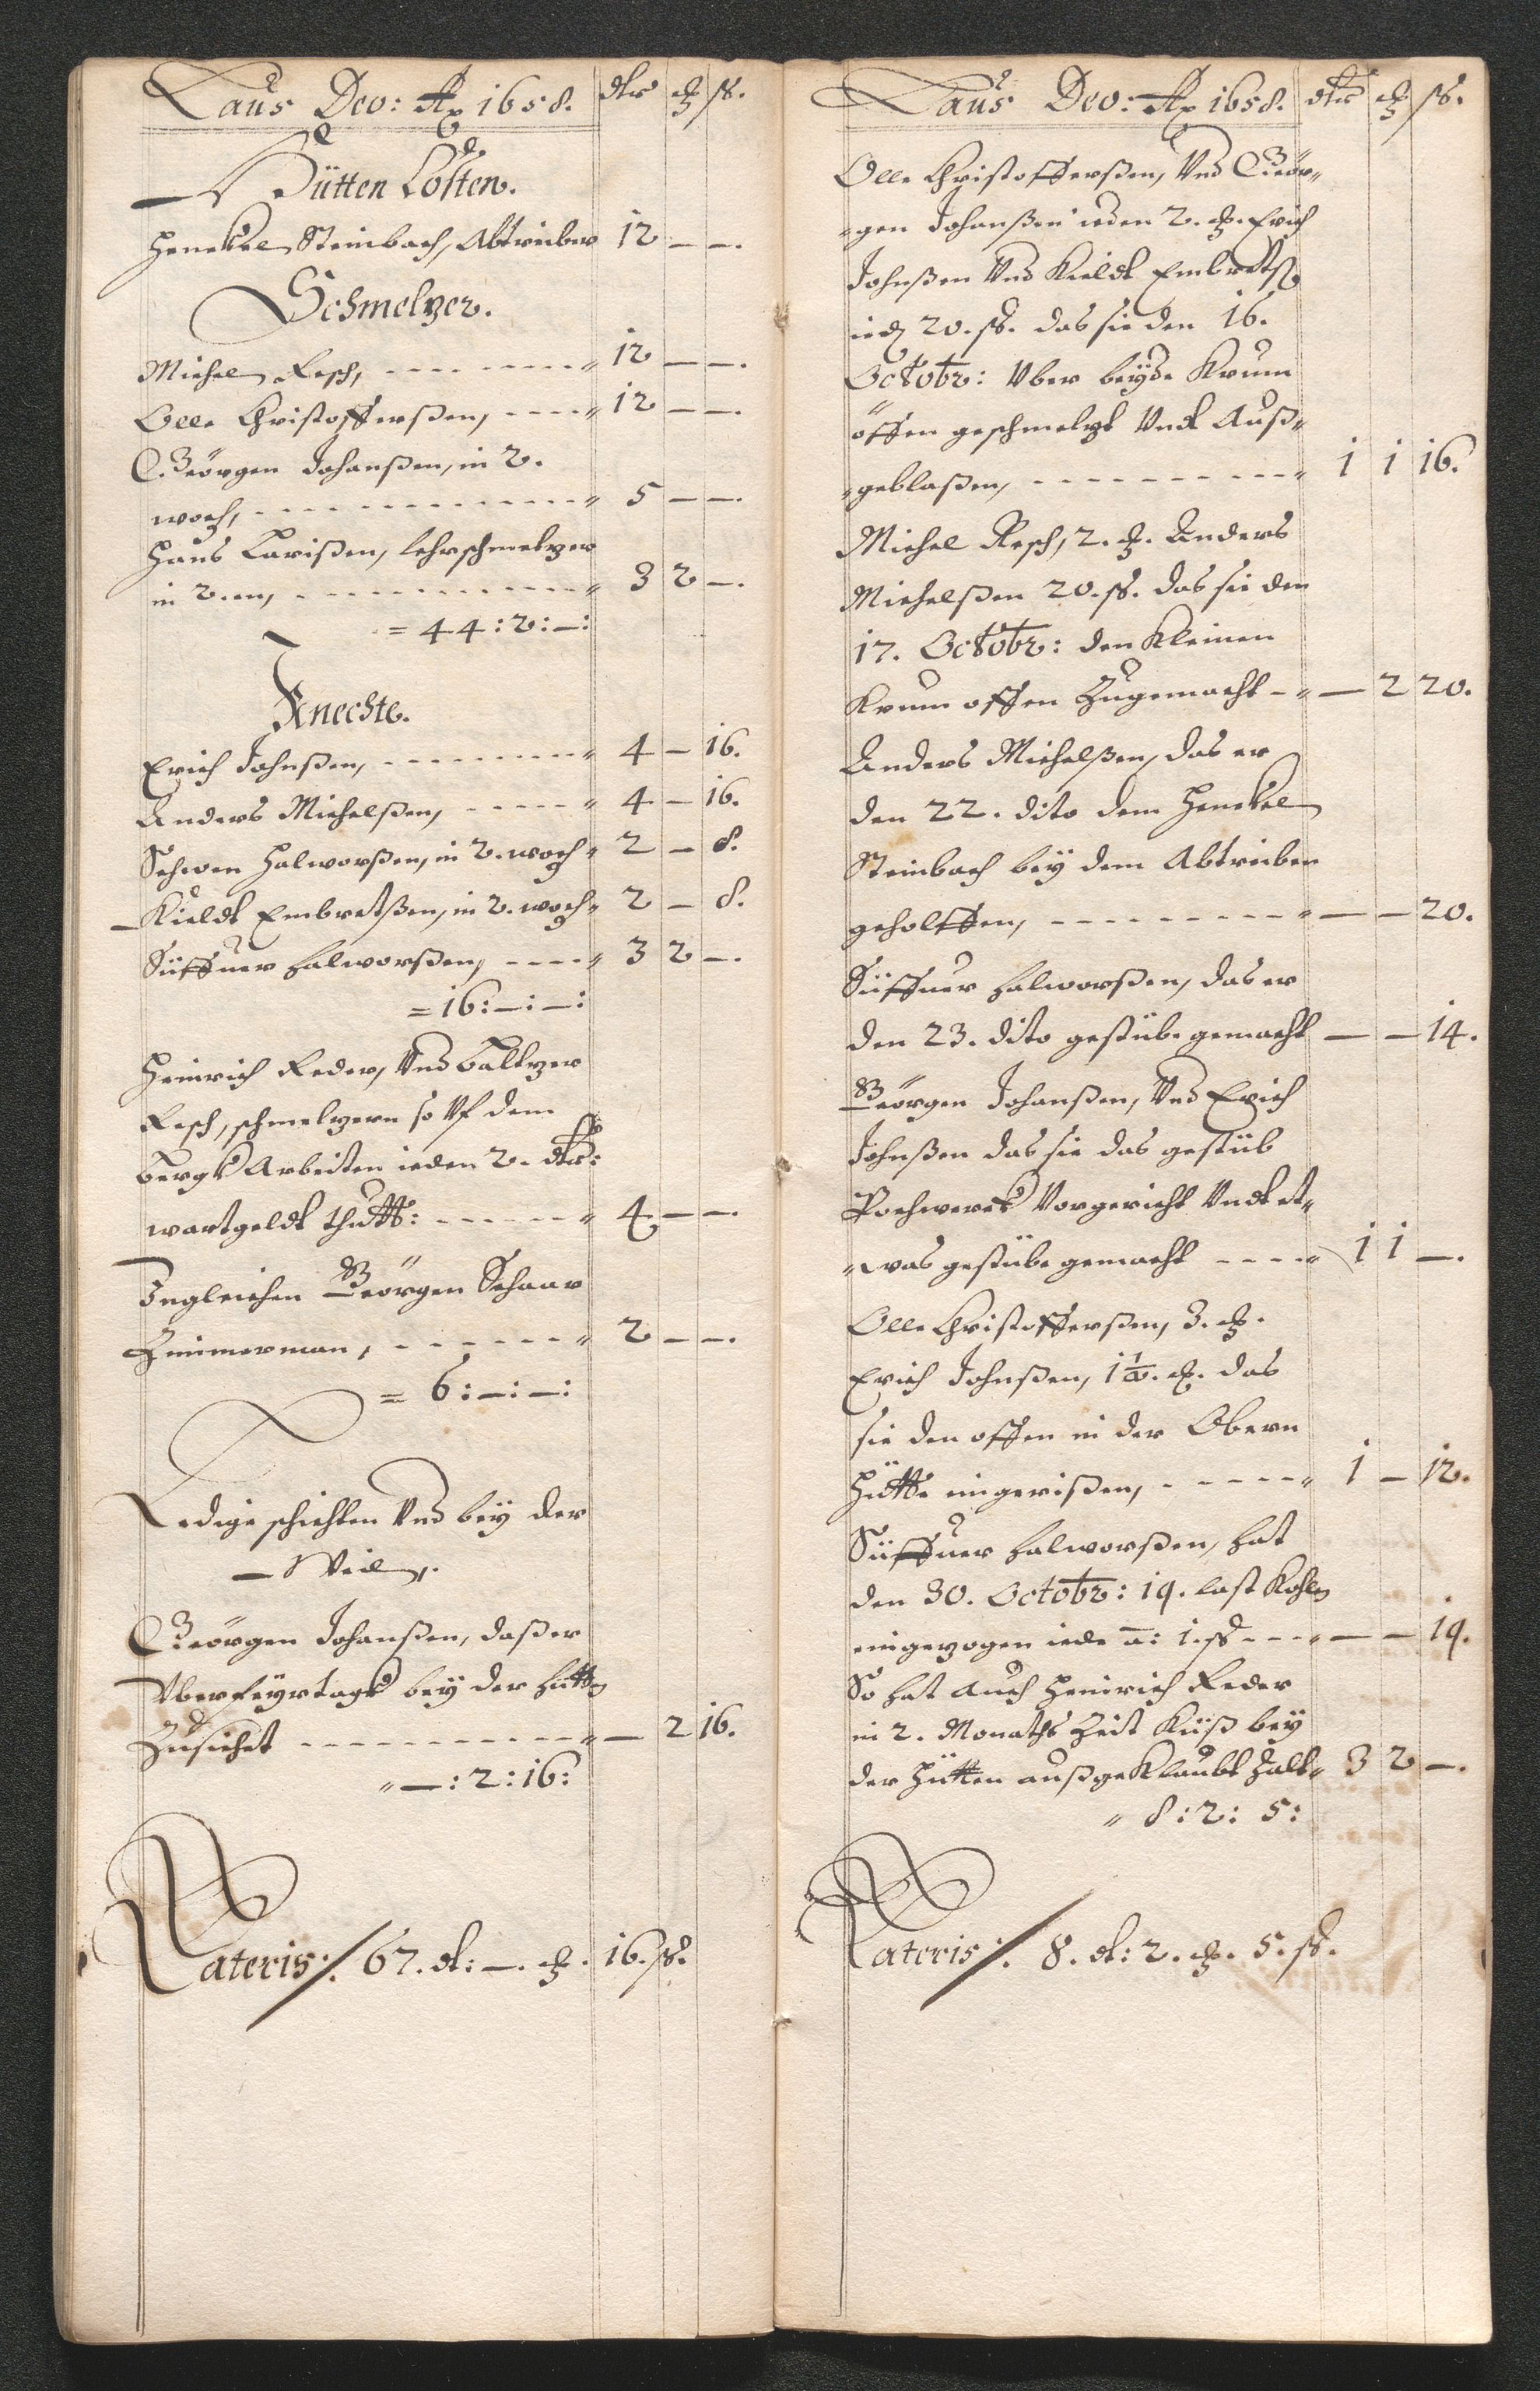 Laus Deo: Ao 1658. dlr ß.
Hütten Costen.
Henckel Steinbach, Abtreiber 12 — —.
Schmelzer.
Michel Resch, 12 — —.
Olle Christoffersßen, 12 — —.
Geörgen Johanßen, in 2.
woch, 5 — —.
Hans Larißen, lehrschmelzer
in 2. 3 2 —.
= 44 : 2 : — :
Knechte.
Erich Johnßen, 4 — 16.
Anders Michelßen, 4 — 16.
Schwen Halworßen, in 2. woch 2 — 8.
Kieldt Embretßen, in 2. woch 2 — 8.
Süffuer Halworßen, 3 2 —.
= 16 : — : — :
Heinrich Reder, Vnd Baltzer
Resch, schmelzern so Vf dem
Bergk Arbeiten ieden 2. dlr:
wartgeldt thutt: 4 — —.
Ingleichen Geörgen Schaar
Zimmerman, 2 — —.
= 6 : — : — :
Ledige schichten Vnd bey der
Weil.
Geörgen Johanßen, daß er
Vber feyrtage bey der hütten
Zusicht — 2 16.
— : 2 : 16 :
Lateris: 67. dl: —. 16. ß.
Laus Deo: Ao 1658. dlr ß.
Olle Christoffersßen, Vnd Geör-
-gen Johanßen ieden 2. Erich
Johnßen Vnd Kieldt Embretß
ied 20. ß. das sie den 16.
Octobr: Vber beyde Krum
öffen geschmelzt Vndt Auß-
-geblaßen, 1 1 16.
Michel Resch, 2. Anders
Michelßen 20. ß. das sie den
17. Octobr: den Kleinen
Krum offen Zugemacht — 2 20.
Anders Michelßen, das er
den 22. dito dem Henckel
Steinbach bey dem Abtreiben
geholffen, — — 20.
Süffuer Halworßen, das er
den 23. dito gestübe gemacht — — 14.
Geörgen Johanßen, Vnd Erich
Johnßen das sie das gestüb
Pochwerck Vorgericht Vndt et-
-was gestübe gemacht 1 1 —.
Olle Christoffersßen, 3.
Erich Johnßen, das
sie den offen in der Obern
Hütte eingerißen, 1 — 12.
Süffuer Halworßen, hat
den 30. Octobr: 19. last Kohln
eingezogen iede a: 1. ß — — 19.
So hat Auch Heinrich Reder
in 2. Monaths Zeit Küß bey
der Hütten außgeklaubt Zalt 3 2 —.
8 : 2 : 5 :
Lateris: 8. dl: 2. 5. ß.